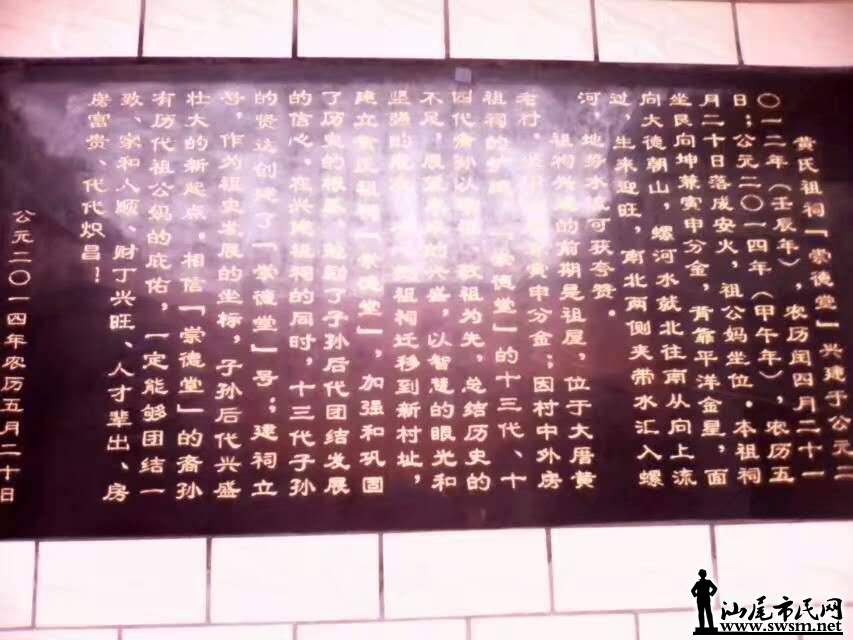 黄氏祖祠「崇德堂」兴建于公元二
〇一二年（壬辰年），农历闰四月二十一
日；公元二〇一四年（甲午年），农历五
月二十日落成安火，祖公妈坐位。本祖祠
坐艮向坤兼寅申分金，背靠平洋金星，面
向大德朝山，螺河水就北往南从向上流
过，生来迎旺，南北两侧夹带水汇入螺
河，地势水 可获夸赞。
祖祠兴建的前期是祖屋，位于大厝黄
老村， 寅申分金；因村中外房
祖祠的 崇德堂」的十三代、十
四代裔孙以 敬祖为先，总结历史的
不足，展望 的兴盛，以智慧的眼光和
坚强的 祖祠迁移到新村址，
建立黄氏祖祠「崇德堂」，加强和巩固
了历史的根基，勉励了子孙后代团结发展
的信心。在兴建祖祠的同时，十三代子孙
的贤达创建了「崇德堂」号；建祠立
号，作为祖史发展的坐标，子孙后代兴盛
壮大的新起点。相信「崇德堂」的裔孙
有历代祖公妈的庇佑，一定能够团结一
致、家和人顺、财丁兴旺、人才辈出、房
房富贵、代代炽昌！
公元二〇一四年农历五月二十日
汕尾市民网
www.swsm.net